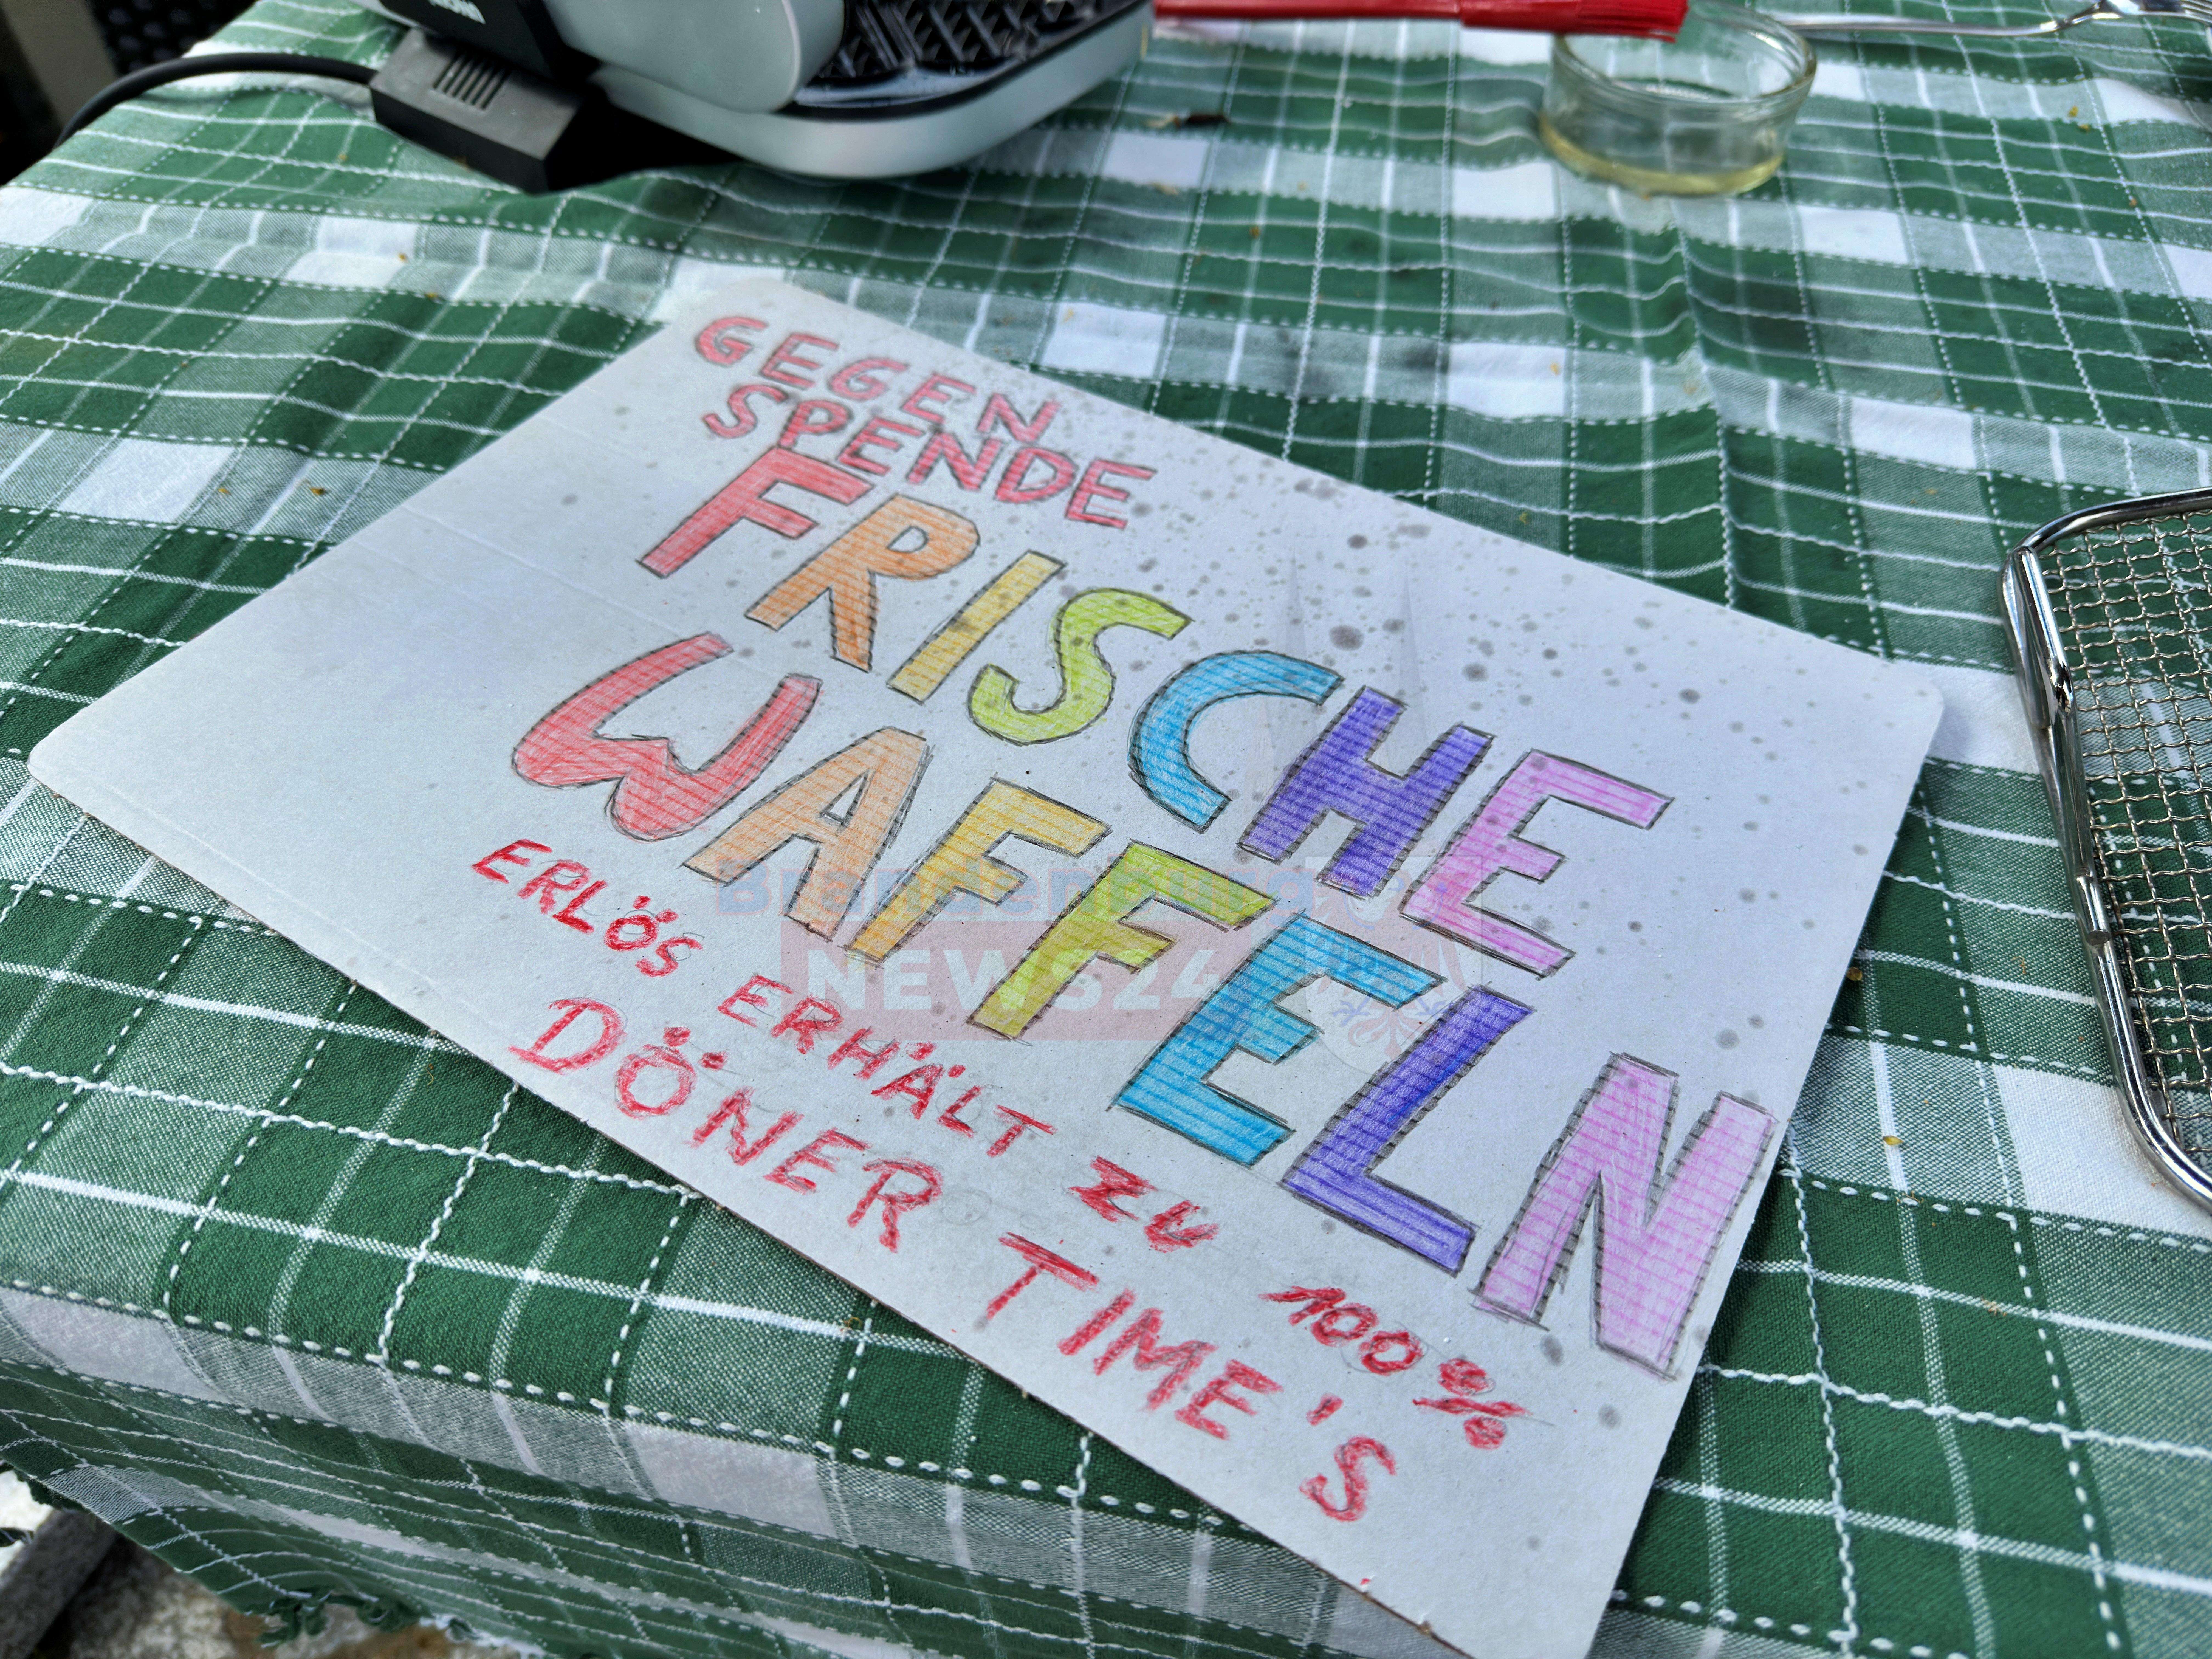 GEGEN
SPENDE
FRISCHE
WAFFELN
ERLÖS ERHÄLT ZU 100%
DÖNER TIME'S
Brandenburg
NEWS24